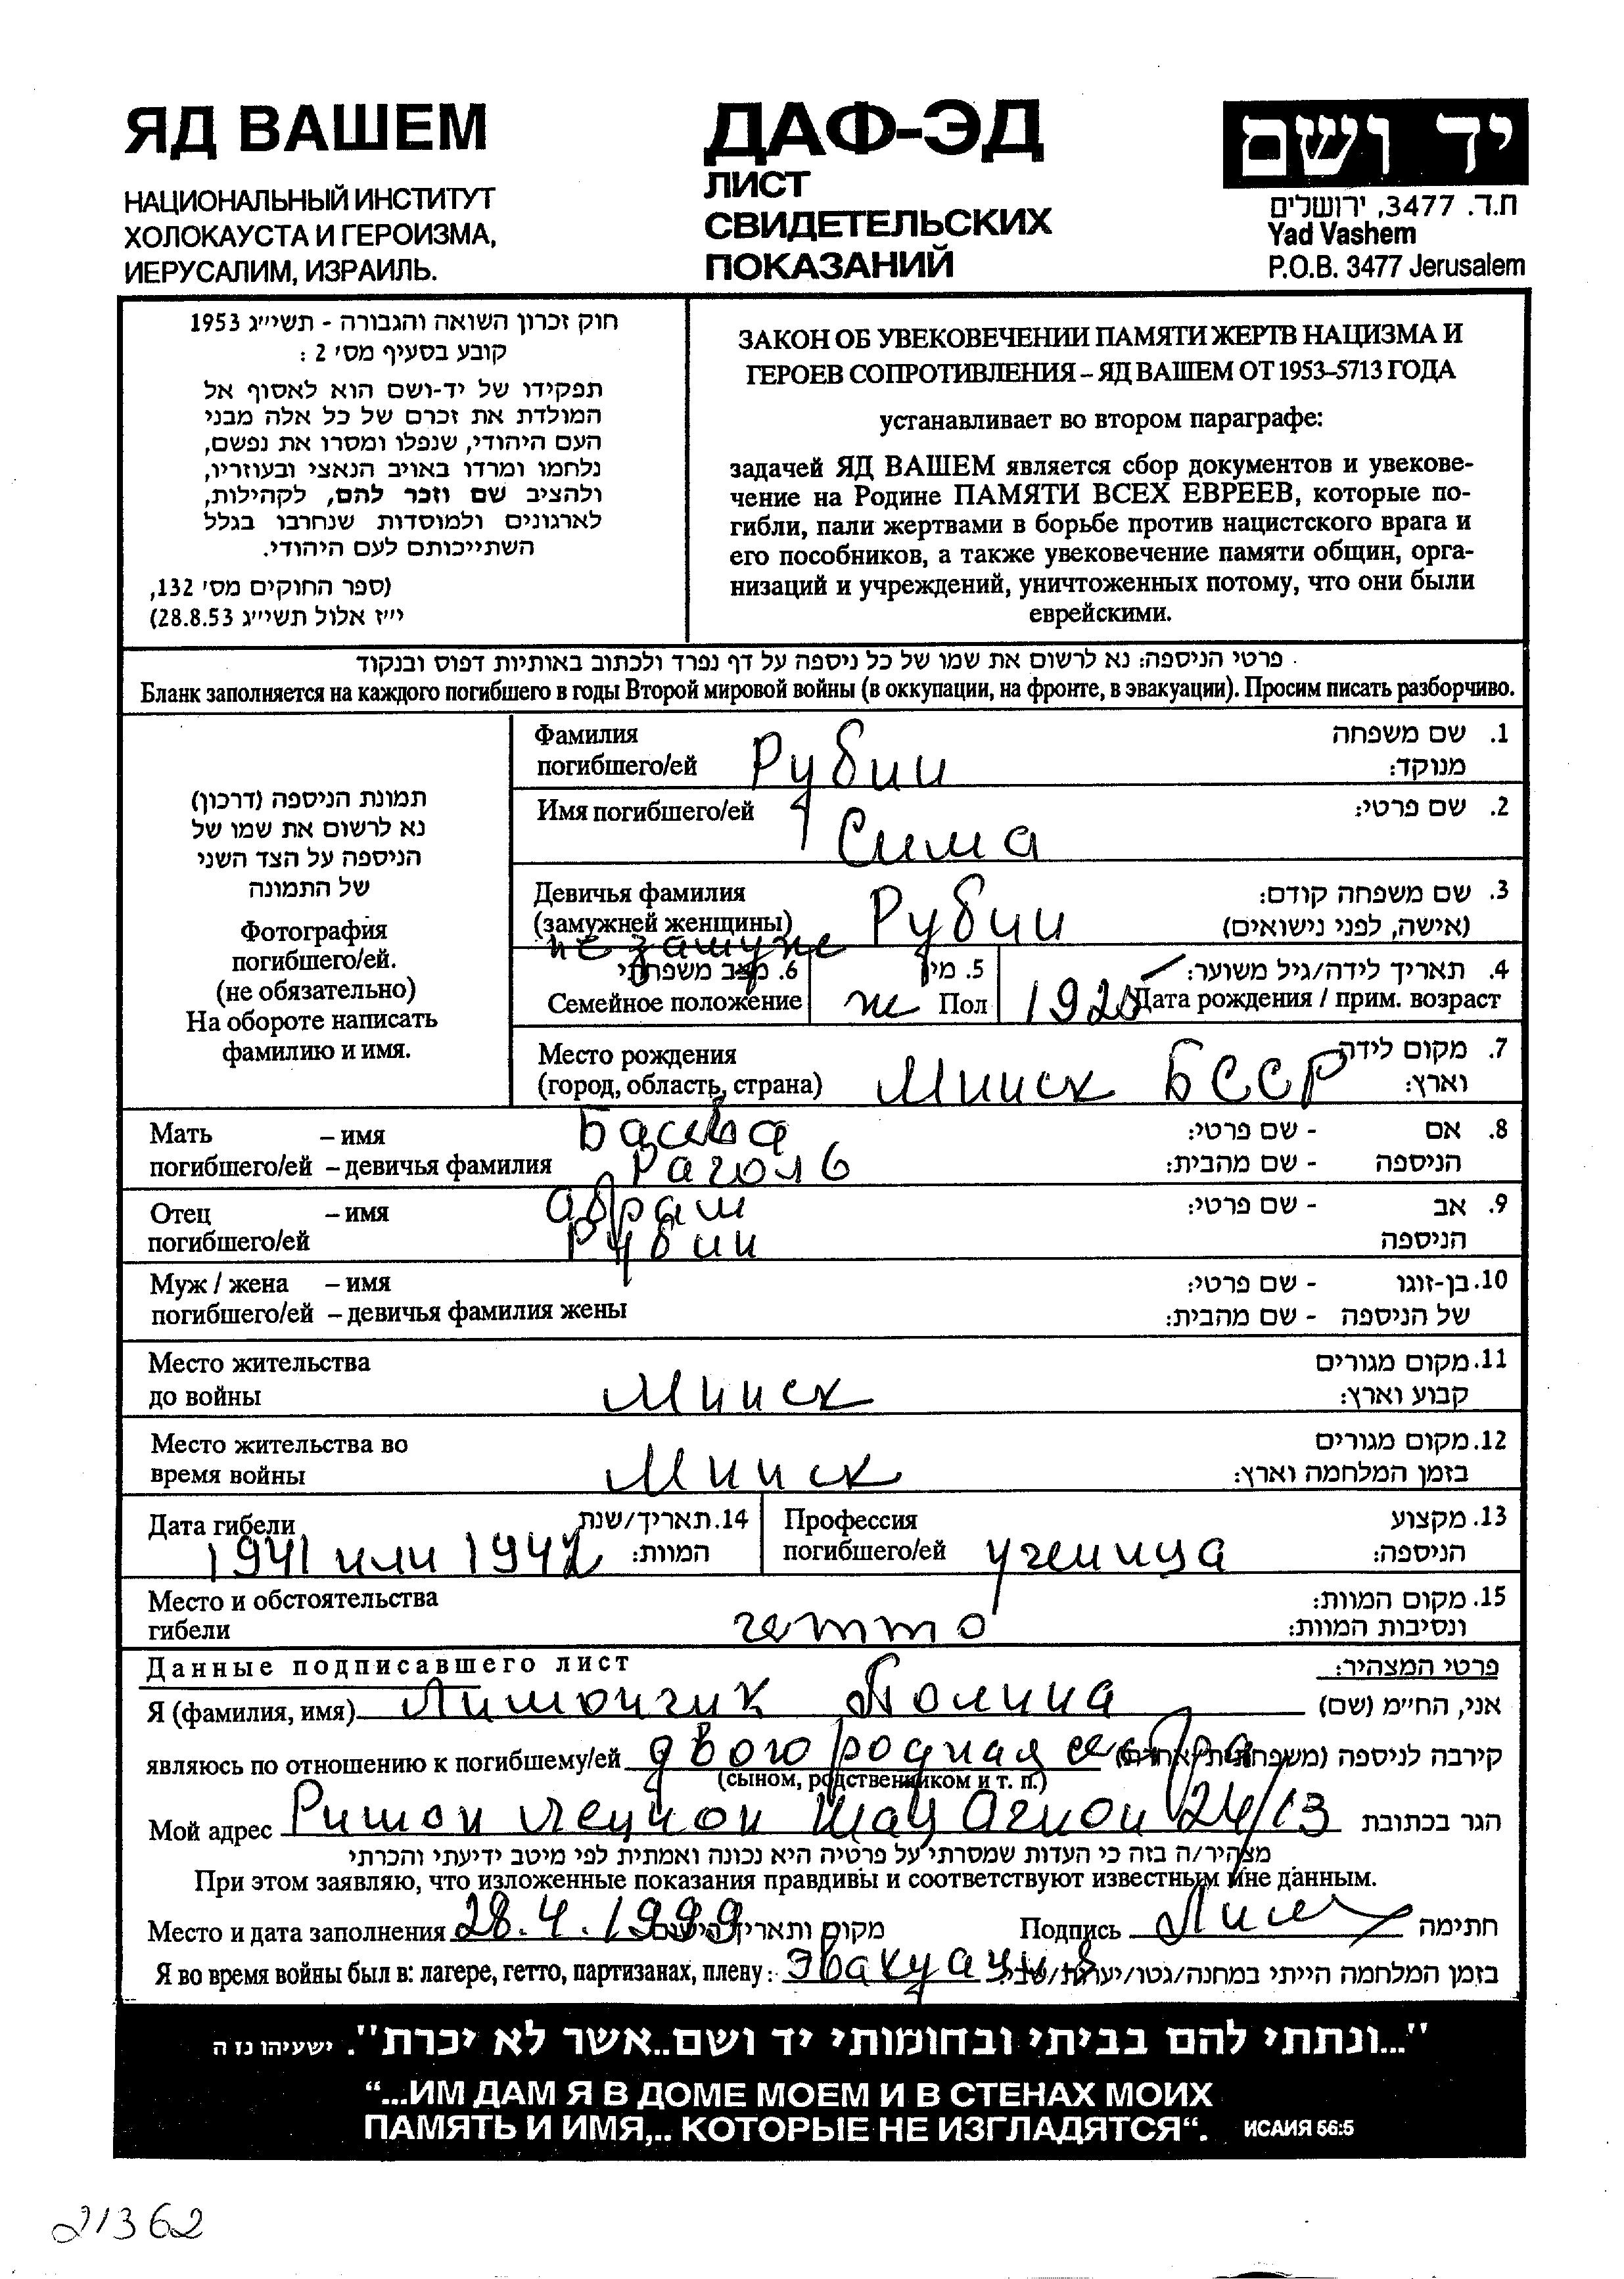 ЯД ВАШЕМ
НАЦИОНАЛЬНЫЙ ИНСТИТУТ
ХОЛОКАУСТА И ГЕРОИЗМА,
ИЕРУСАЛИМ, ИЗРАИЛЬ.
ДАФ-ЭД
ЛИСТ
СВИДЕТЕЛЬСКИХ
ПОКАЗАНИЙ
יד ושם
ת.ד. 3477, ירושלים
Yad Vashem
P.O.B. 3477 Jerusalem
חוק זכרון השואה והגבורה - תשי״ג 1953
קובע בסעיף מס׳ 2 :
תפקידו של יד-ושם הוא לאסוף אל
המולדת את זכרם של כל אלה מבני
העם היהודי, שנפלו ומסרו את נפשם,
נלחמו ומרדו באויב הנאצי ובעוזריו,
ולהציב שם וזכר להם, לקהילות,
לארגונים ולמוסדות שנחרבו בגלל
השתייכותם לעם היהודי.
(ספר החוקים מס׳ 132,
י״ז אלול תשי״ג 28.8.53)
ЗАКОН ОБ УВЕКОВЕЧЕНИИ ПАМЯТИ ЖЕРТВ НАЦИЗМА И
ГЕРОЕВ СОПРОТИВЛЕНИЯ – ЯД ВАШЕМ ОТ 1953–5713 ГОДА
устанавливает во втором параграфе:
задачей ЯД ВАШЕМ является сбор документов и увекове-
чение на Родине ПАМЯТИ ВСЕХ ЕВРЕЕВ, которые по-
гибли, пали жертвами в борьбе против нацистского врага и
его пособников, а также увековечение памяти общин, орга-
низаций и учреждений, уничтоженных потому, что они были
еврейскими.
פרטי הניספה: נא לרשום את שמו של כל ניספה על דף נפרד ולכתוב באותיות דפוס ובנקוד
Бланк заполняется на каждого погибшего в годы Второй мировой войны (в оккупации, на фронте, в эвакуации). Просим писать разборчиво.
תמונת הניספה (דרכון)
נא לרשום את שמו של
הניספה על הצד השני
של התמונה
Фотография
погибшего/ей.
(не обязательно)
На обороте написать
фамилию и имя.
Фамилия 1. שם משפחה
погибшего/ей Рубин מנוקד:
Имя погибшего/ей 2. שם פרטי:
Сима
Девичья фамилия 3. שם משפחה קודם:
(замужней женщины) Рубин (אישה, לפני נישואים)
не замуже
6. מצב משפחתי 5. מין 4. תאריך לידה/גיל משוער:
Семейное положение ж Пол Дата рождения / прим. возраст
Место рождения 7. מקום לידה
(город, область, страна) Минск БССР וארץ:
Мать – имя Басева 8. אם - שם פרטי:
погибшего/ей – девичья фамилия Раголь הניספה - שם מהבית:
Отец – имя Абрам 9. אב - שם פרטי:
погибшего/ей Рубин הניספה
Муж / жена – имя 10. בן-זוגו - שם פרטי:
погибшего/ей – девичья фамилия жены של הניספה - שם מהבית:
Место жительства 11. מקום מגורים
до войны Минск קבוע וארץ:
Место жительства во 12. מקום מגורים
время войны Минск בזמן המלחמה וארץ:
Дата гибели 14. תאריך/שנת Профессия 13. מקצוע
1941 или 1942 המוות: погибшего/ей ученица הניספה:
Место и обстоятельства 15. מקום המוות:
гибели гетто ונסיבות המוות:
Данные подписавшего лист פרטי המצהיר:
Я (фамилия, имя) Лимончик Полина אני, הח״מ (שם)
являюсь по отношению к погибшему/ей двоюродная сестра קירבה לניספה
(сыном, родственником и т. п.)
Мой адрес Ришон Лецион Шац Агнон 24/13 הגר בכתובת
מצהיר/ה בזה כי העדות שמסרתי על פרטיה היא נכונה ואמתית לפי מיטב ידיעתי והכרתי
При этом заявляю, что изложенные показания правдивы и соответствуют известным мне данным.
Место и дата заполнения 28.4.1999 מקום ותאריך Подпись Лим חתימה
Я во время войны был в: лагере, гетто, партизанах, плену: Эвакуация בזמן המלחמה הייתי במחנה/גטו/יערות/שבי:
"...ונתתי להם בביתי ובחומותי יד ושם..אשר לא יכרת". ישעיהו נז ה
“...ИМ ДАМ Я В ДОМЕ МОЕМ И В СТЕНАХ МОИХ
ПАМЯТЬ И ИМЯ,.. КОТОРЫЕ НЕ ИЗГЛАДЯТСЯ“. ИСАИЯ 56:5
21362